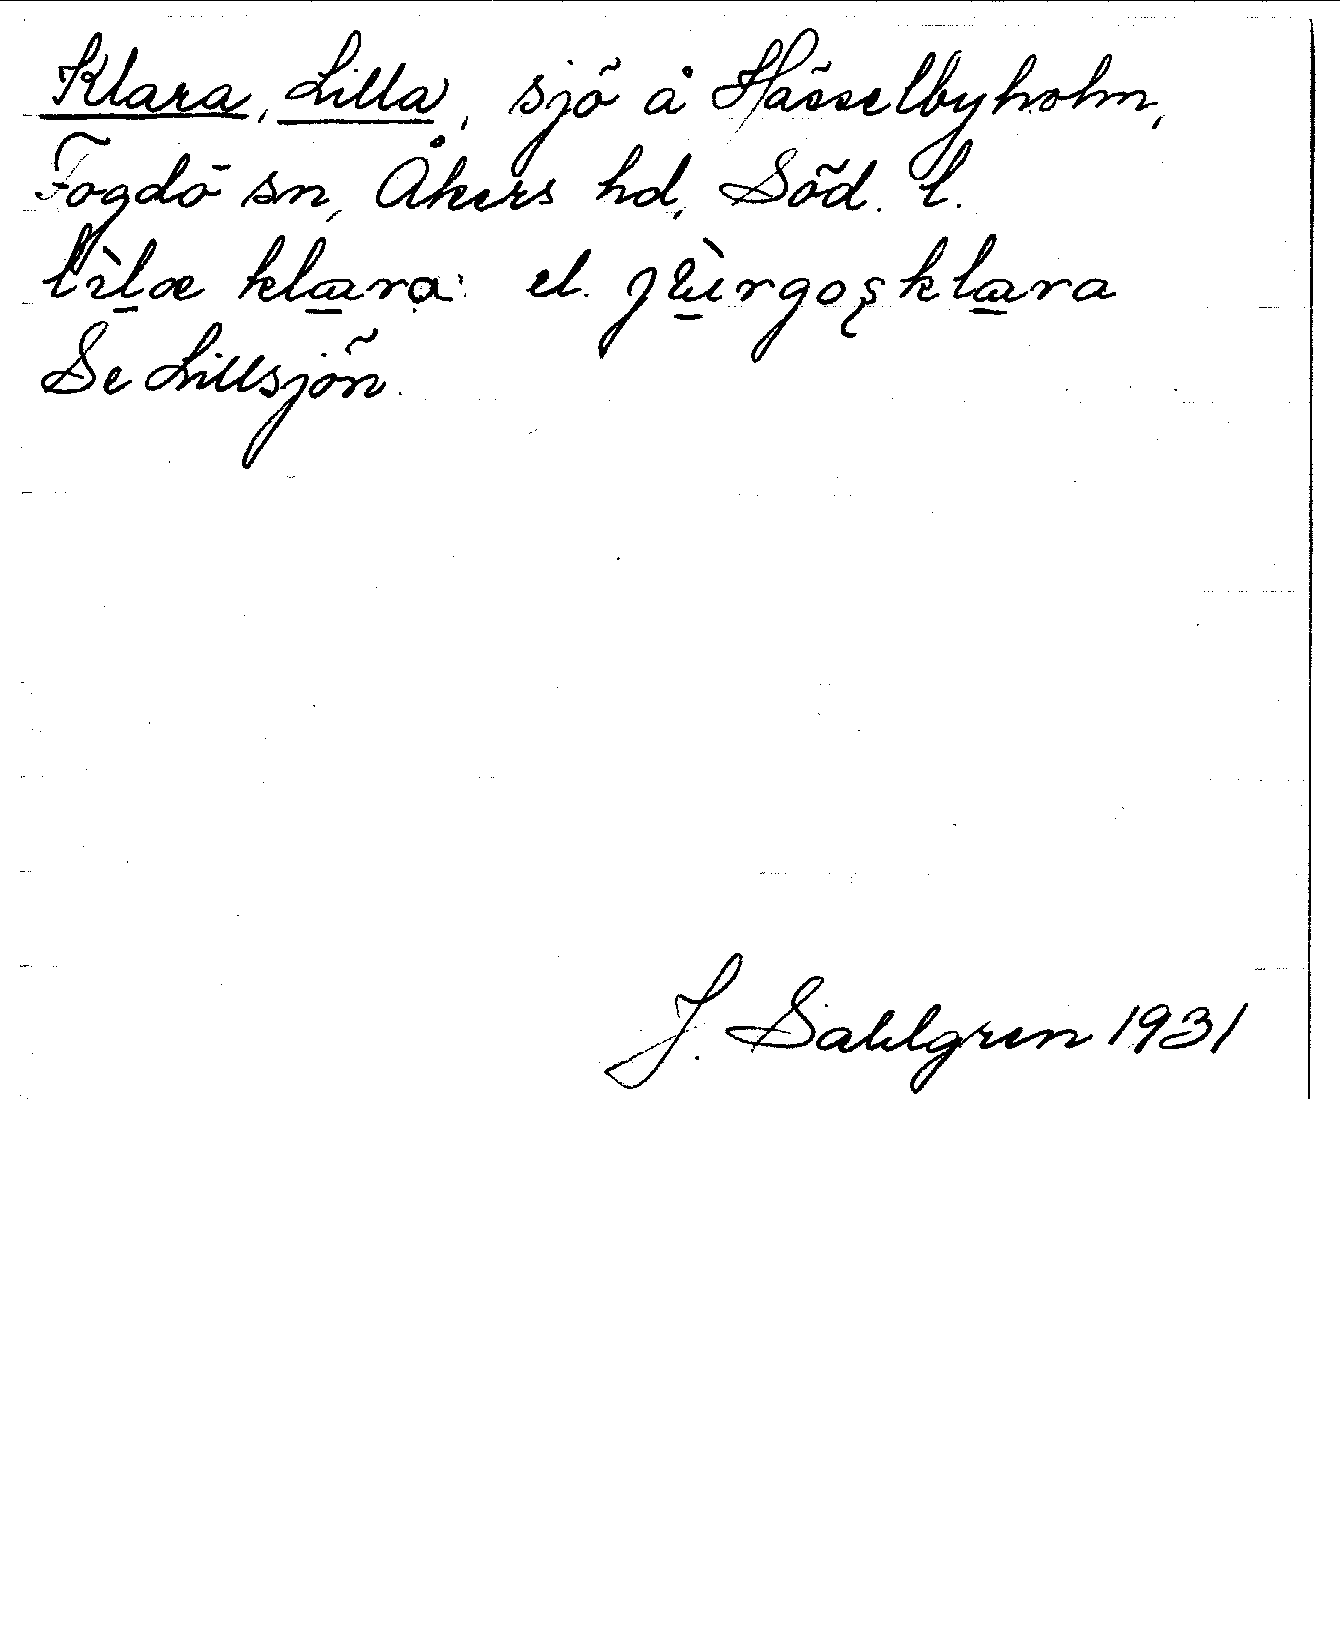 Klara, Lilla, sjö å Hässelbyholm,
Fogdö sn, Åkers hd, Söd. l.
lìlα klαra el. jʉ̀rgoʂklαra
Se Lillsjön.
J. Sahlgren 1931